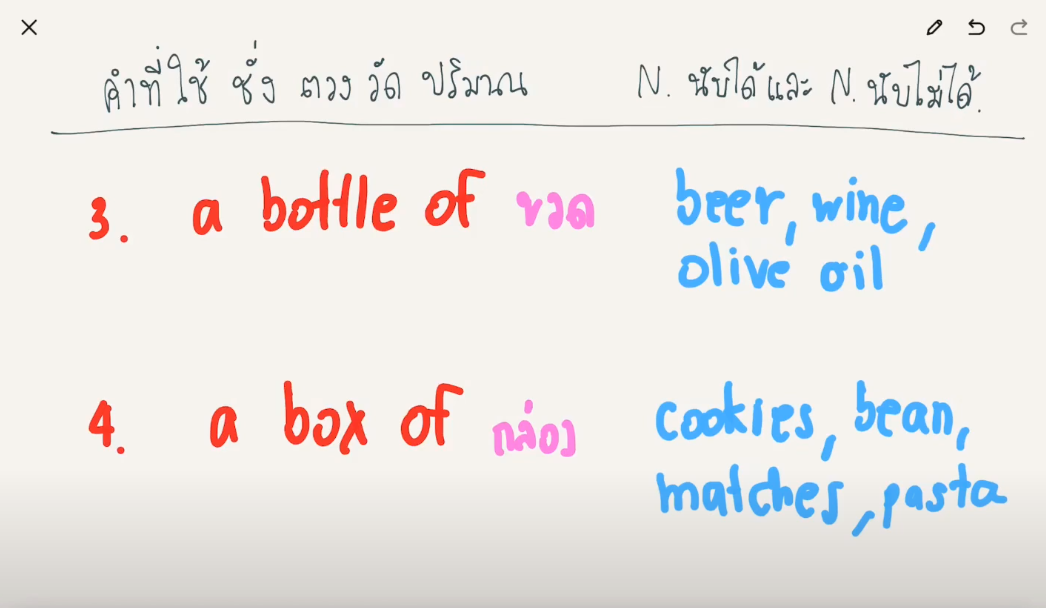 คำที่ใช้ ชั่ง ตวง วัด ปริมาณ N. นับได้และ N. นับไม่ได้.
3. a bottle of ขวด beer, wine,
olive oil
4. a box of กล่อง cookies, bean,
matches, pasta